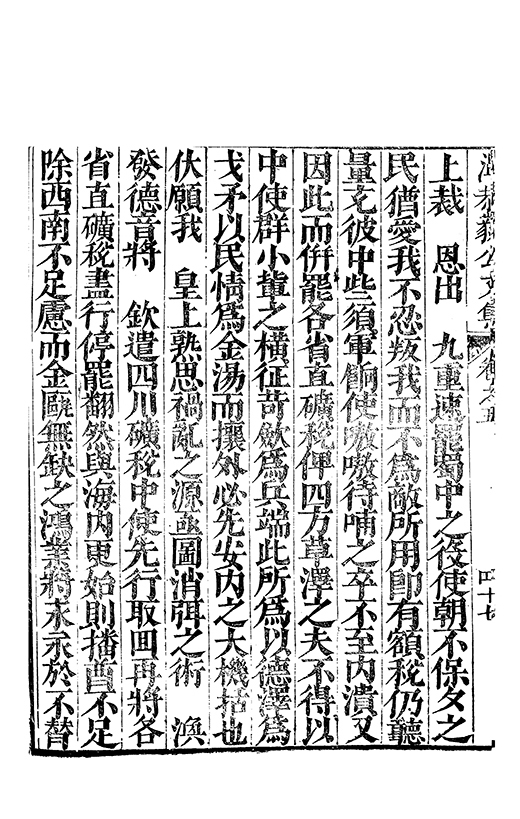 恭毅公文集 卷之五 四十七
上裁　恩出　九重速罷蜀中之役使朝不保夕之
民猶愛我不忍叛我而不為敵所用卽有額稅仍聽
量支彼中些須軍餉使嗷嗷待哺之卒不至內潰又
因此而併罷各省直礦稅俾四方草澤之夫不得以
中使群小輩之橫征苛斂為兵端此所為以德澤為
戈矛以民情為金湯而攘外必先安內之大機括也
伏願我　皇上熟思禍亂之源亟圖消弭之術　渙
發德音將　欽遣四川礦稅中使先行取回再將各
省直礦稅盡行停罷翻然與海內更始則播酋不足
除西南不足慮而金甌無缺之鴻業將永永於不替